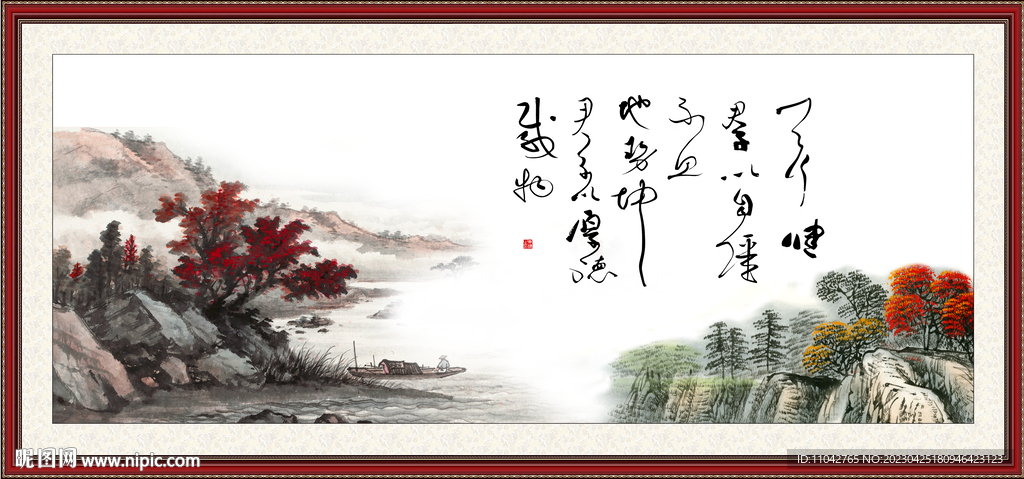 天行健
君子以自强
不息
地势坤
君子以厚德
载物
昵图网 www.nipic.com
ID:11042765 NO:20230425180946423123